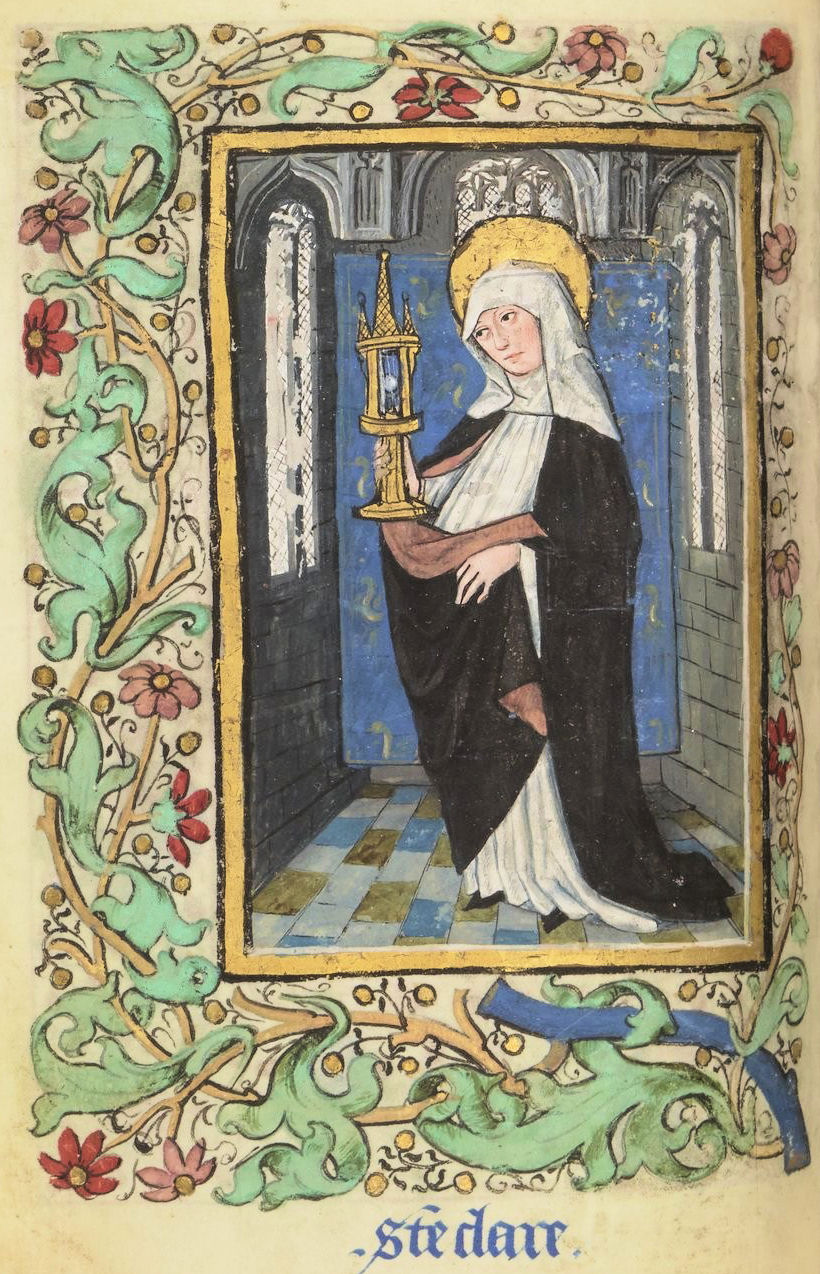 .ste clare.